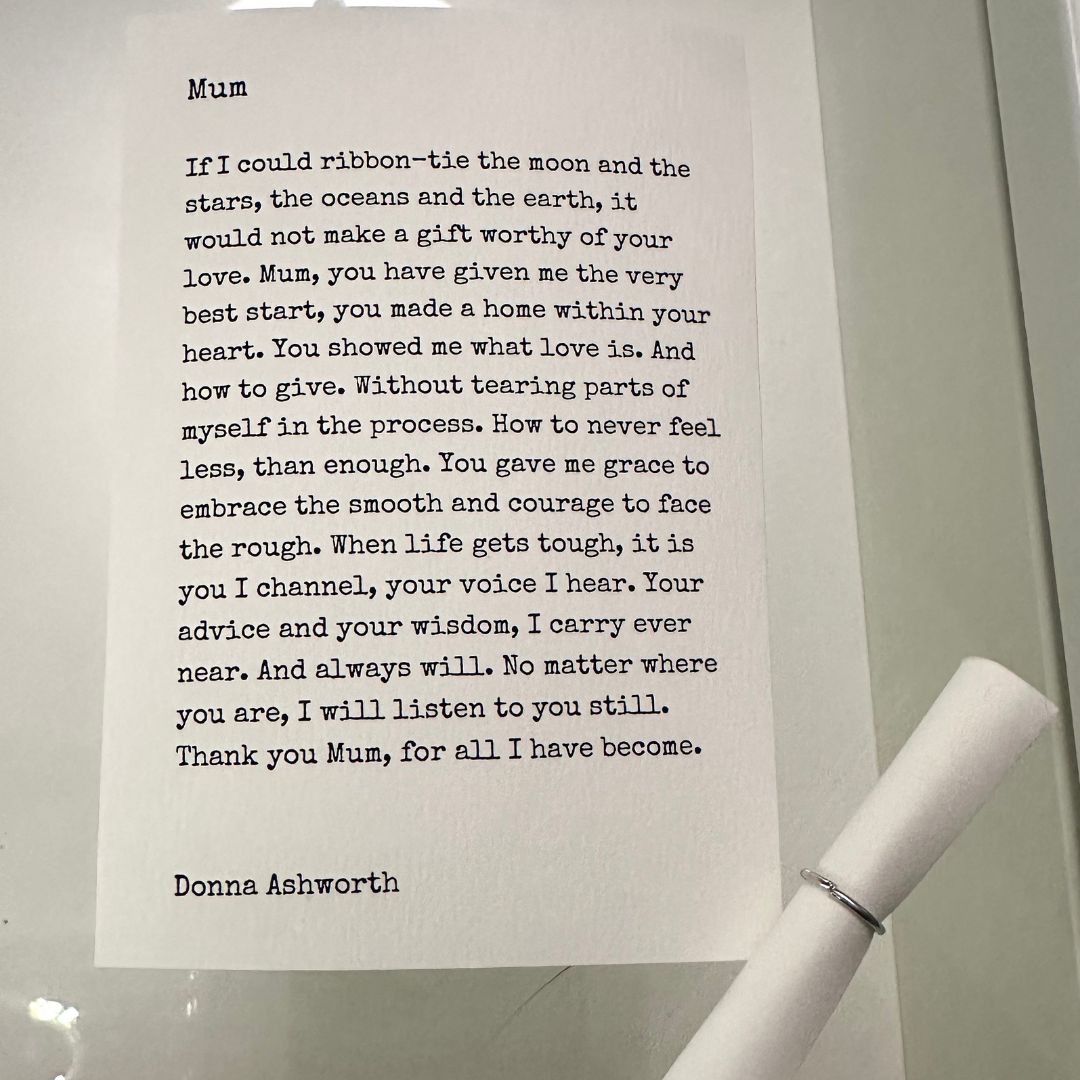 Mum
If I could ribbon-tie the moon and the
stars, the oceans and the earth, it
would not make a gift worthy of your
love. Mum, you have given me the very
best start, you made a home within your
heart. You showed me what love is. And
how to give. Without tearing parts of
myself in the process. How to never feel
less, than enough. You gave me grace to
embrace the smooth and courage to face
the rough. When life gets tough, it is
you I channel, your voice I hear. Your
advice and your wisdom, I carry ever
near. And always will. No matter where
you are, I will listen to you still.
Thank you Mum, for all I have become.
Donna Ashworth